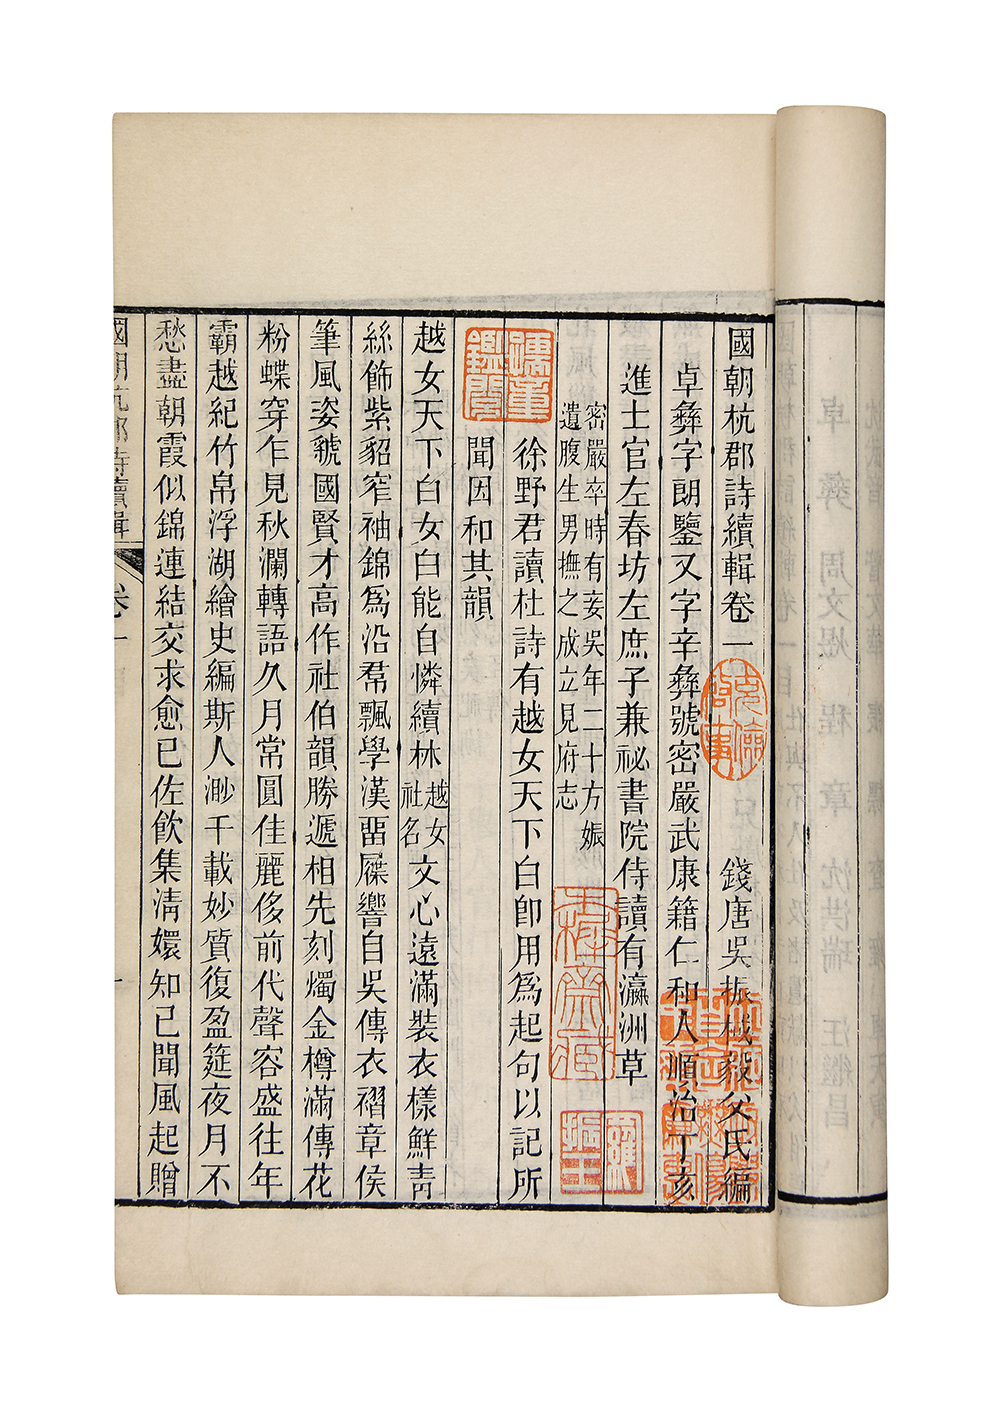 國朝杭郡詩續輯卷一
錢唐吳振棫毅父氏編
卓彝字朗鑒又字辛彝號密嚴武康籍仁和人順治丁亥
進士官左春坊左庶子兼祕書院侍讀有瀛洲草
密嚴卒時有妾吳年二十方娠
遺腹生男撫之成立見府志
徐野君讀杜詩有越女天下白卽用爲起句以記所
聞因和其韻
越女天下白女白能自憐續林越女社名文心遠滿裝衣樣鮮靑
絲飾紫貂窄袖錦爲沿羣飄學漢畱屧響自吳傳衣褶章侯
筆風姿虢國賢才高作社伯韻勝遞相先刻燭金樽滿傳花
粉蝶穿乍見秋瀾轉語久月常圓佳麗侈前代聲容盛往年
霸越紀竹帛浮湖繪史編斯人渺千載妙質復盈筵夜月不
愁盡朝霞似錦連結交求愈已佐飮集淸嬛知已聞風起贈
國朝杭郡詩續輯
卷一
一
卓彝 周文煜 程章 沈洪瑞 汪繼昌